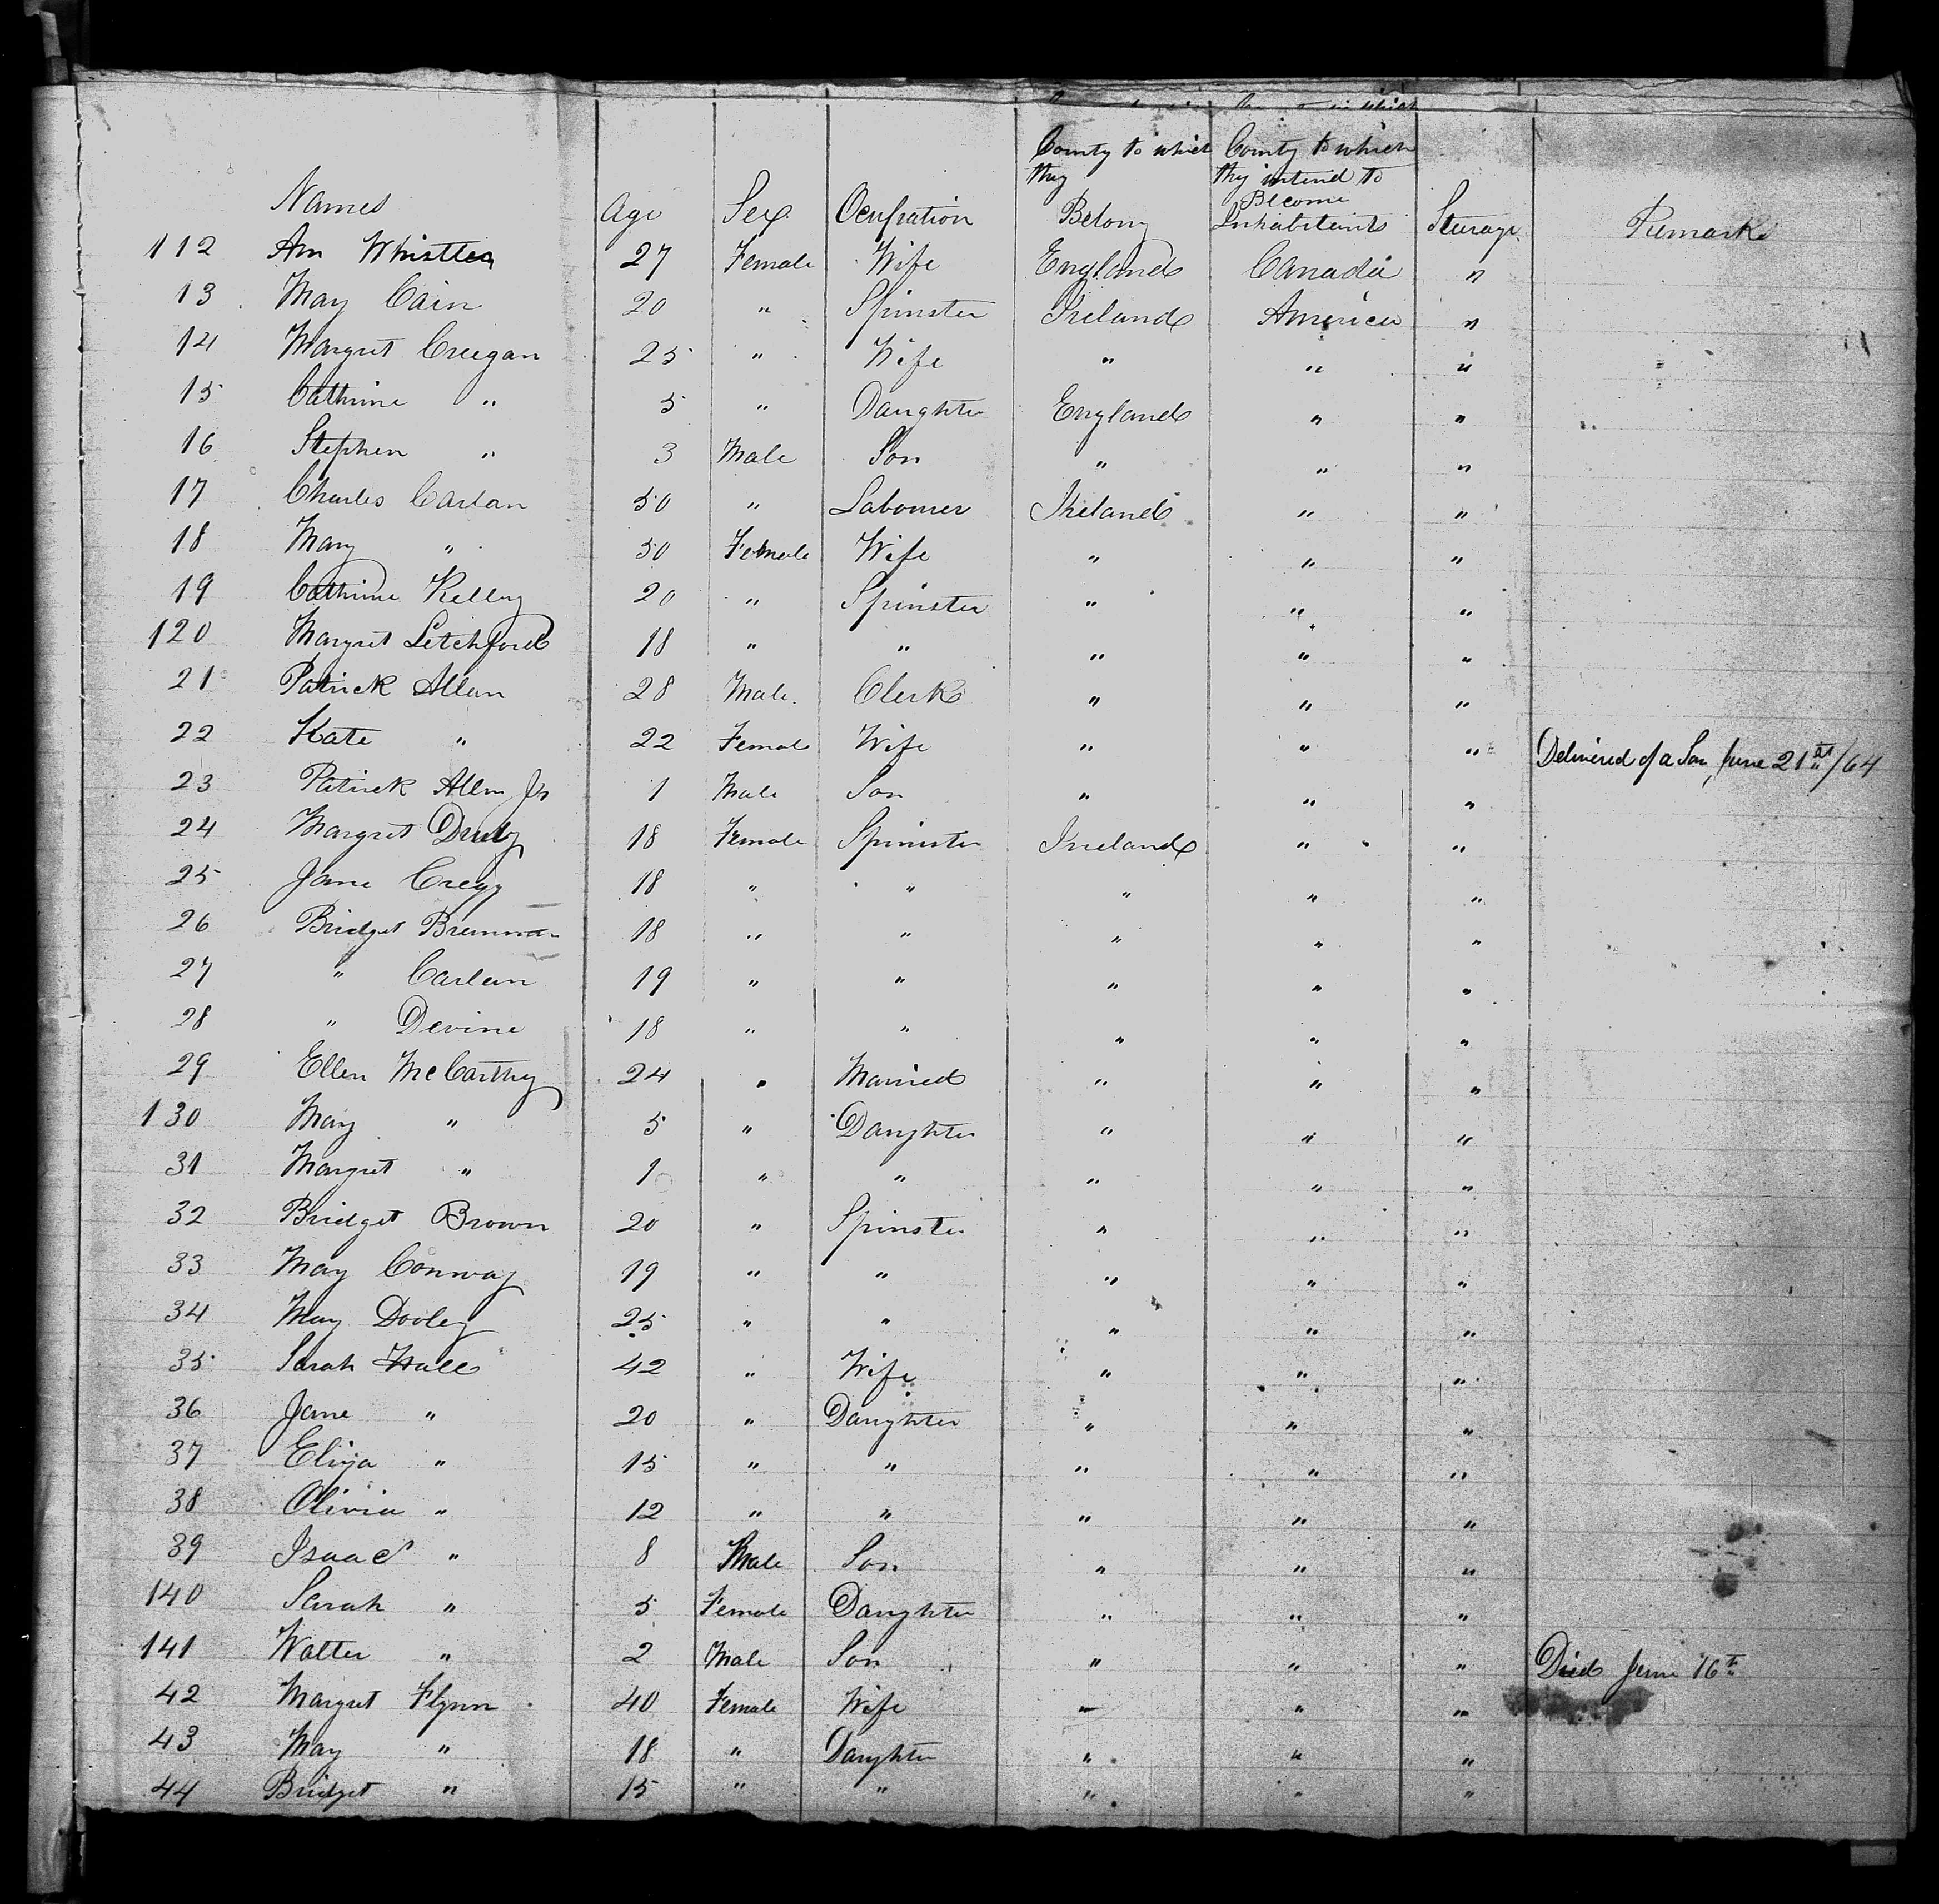 County to which they Belong
County to which they intend to Become Inhabitants
Names Age Sex Ocupation Sturage Remarks
112 Ann Whistler 27 Female Wife England Canada "
13 May Cain 20 " Spinster Ireland America "
14 Margret Creegan 25 " Wife " " "
15 Cathrine " 5 " Daughter England " "
16 Stephen " 3 Male Son " " "
17 Charles Carlan 50 " Labourer Ireland " "
18 Mary " 50 Female Wife " " "
19 Cathrine Kelley 20 " Spinster " " "
120 Margret Letchford 18 " " " " "
21 Patrick Allen 28 Male Clerk " " "
22 Kate " 22 Female Wife " " " Delivered of a Son, June 21st/64
23 Patrick Allen Jr 1 Male Son " " "
24 Margret 18 Female Spinster Ireland " "
25 Jane Cregg 18 " " " " "
26 Bridget 18 " " " " "
27 " Carlan 19 " " " " "
28 " Devine 18 " " " " "
29 Ellen McCarthy 24 " Married " " "
130 May " 5 " Daughter " " "
31 Margret " 1 " " " " "
32 Bridget Brown 20 " Spinster " " "
33 May Conway 19 " " " " "
34 May Dooley 25 " " " " "
35 Sarah Hall 42 " Wife " " "
36 Jane " 20 " Daughter " " "
37 Eliza " 15 " " " " "
38 Olivia " 12 " " " " "
39 Isaac " 8 Male Son " " "
140 Sarah " 5 Female Daughter " " "
141 Walter " 2 Male Son " " " Died June 16th
42 Margret Flynn 40 Female Wife " " "
43 May " 18 " Daughter " " "
44 Bridget " 15 " " " " "